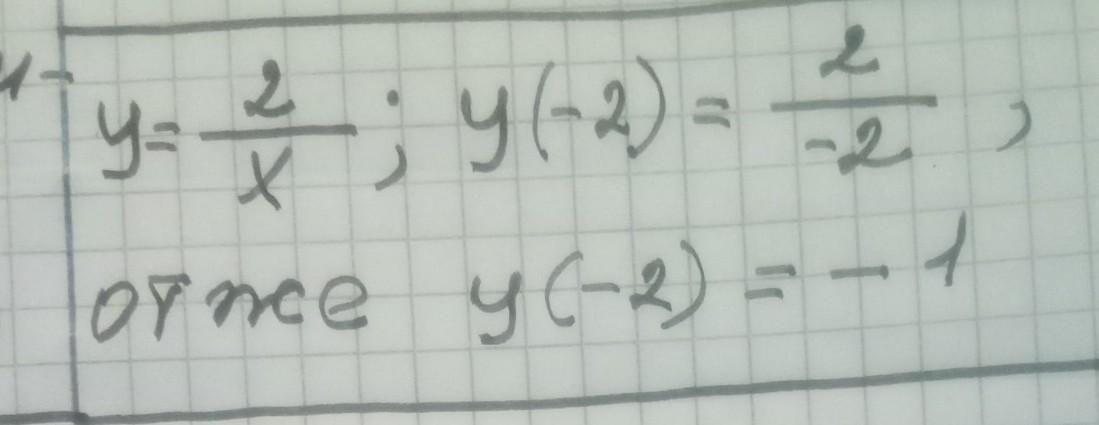 y = 2/x ; y(-2) = 2/-2 ,
отже y(-2) = - 1